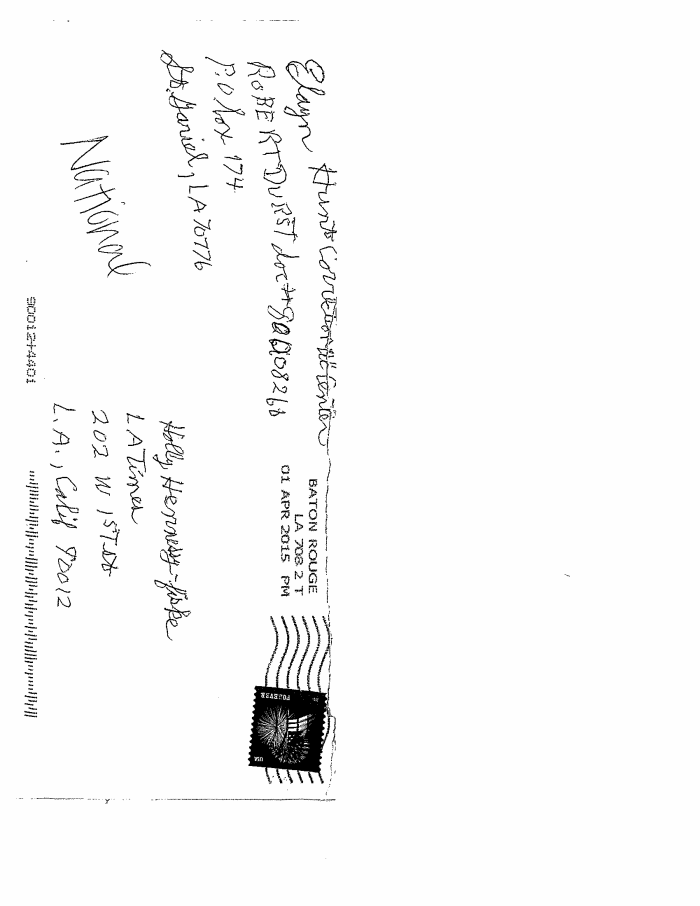 Elayn Hunt Correctional Center
ROBERT DURST doc #
P.O box 174
St. Gariel, LA 70776
National
BATON ROUGE
LA 708 2 T
01 APR 2015 PM
FOREVER
USA
Holly Hennessy-fiske
LA Times
202 W 1ST St
L.A., Calif 90012
9001244401